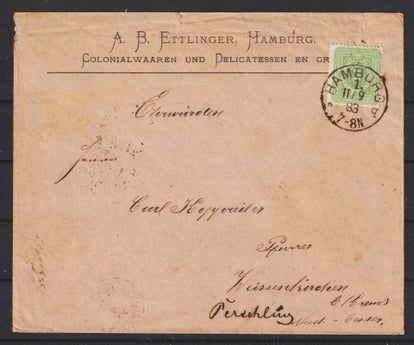 A. B. Ettlinger, Hamburg.
Colonialwaaren und Delicatessen en gr
HAMBURG
1.
11/9
83
7-8N
Herrn
Carl
Pfarrer
Weissenkirchen
Perschling